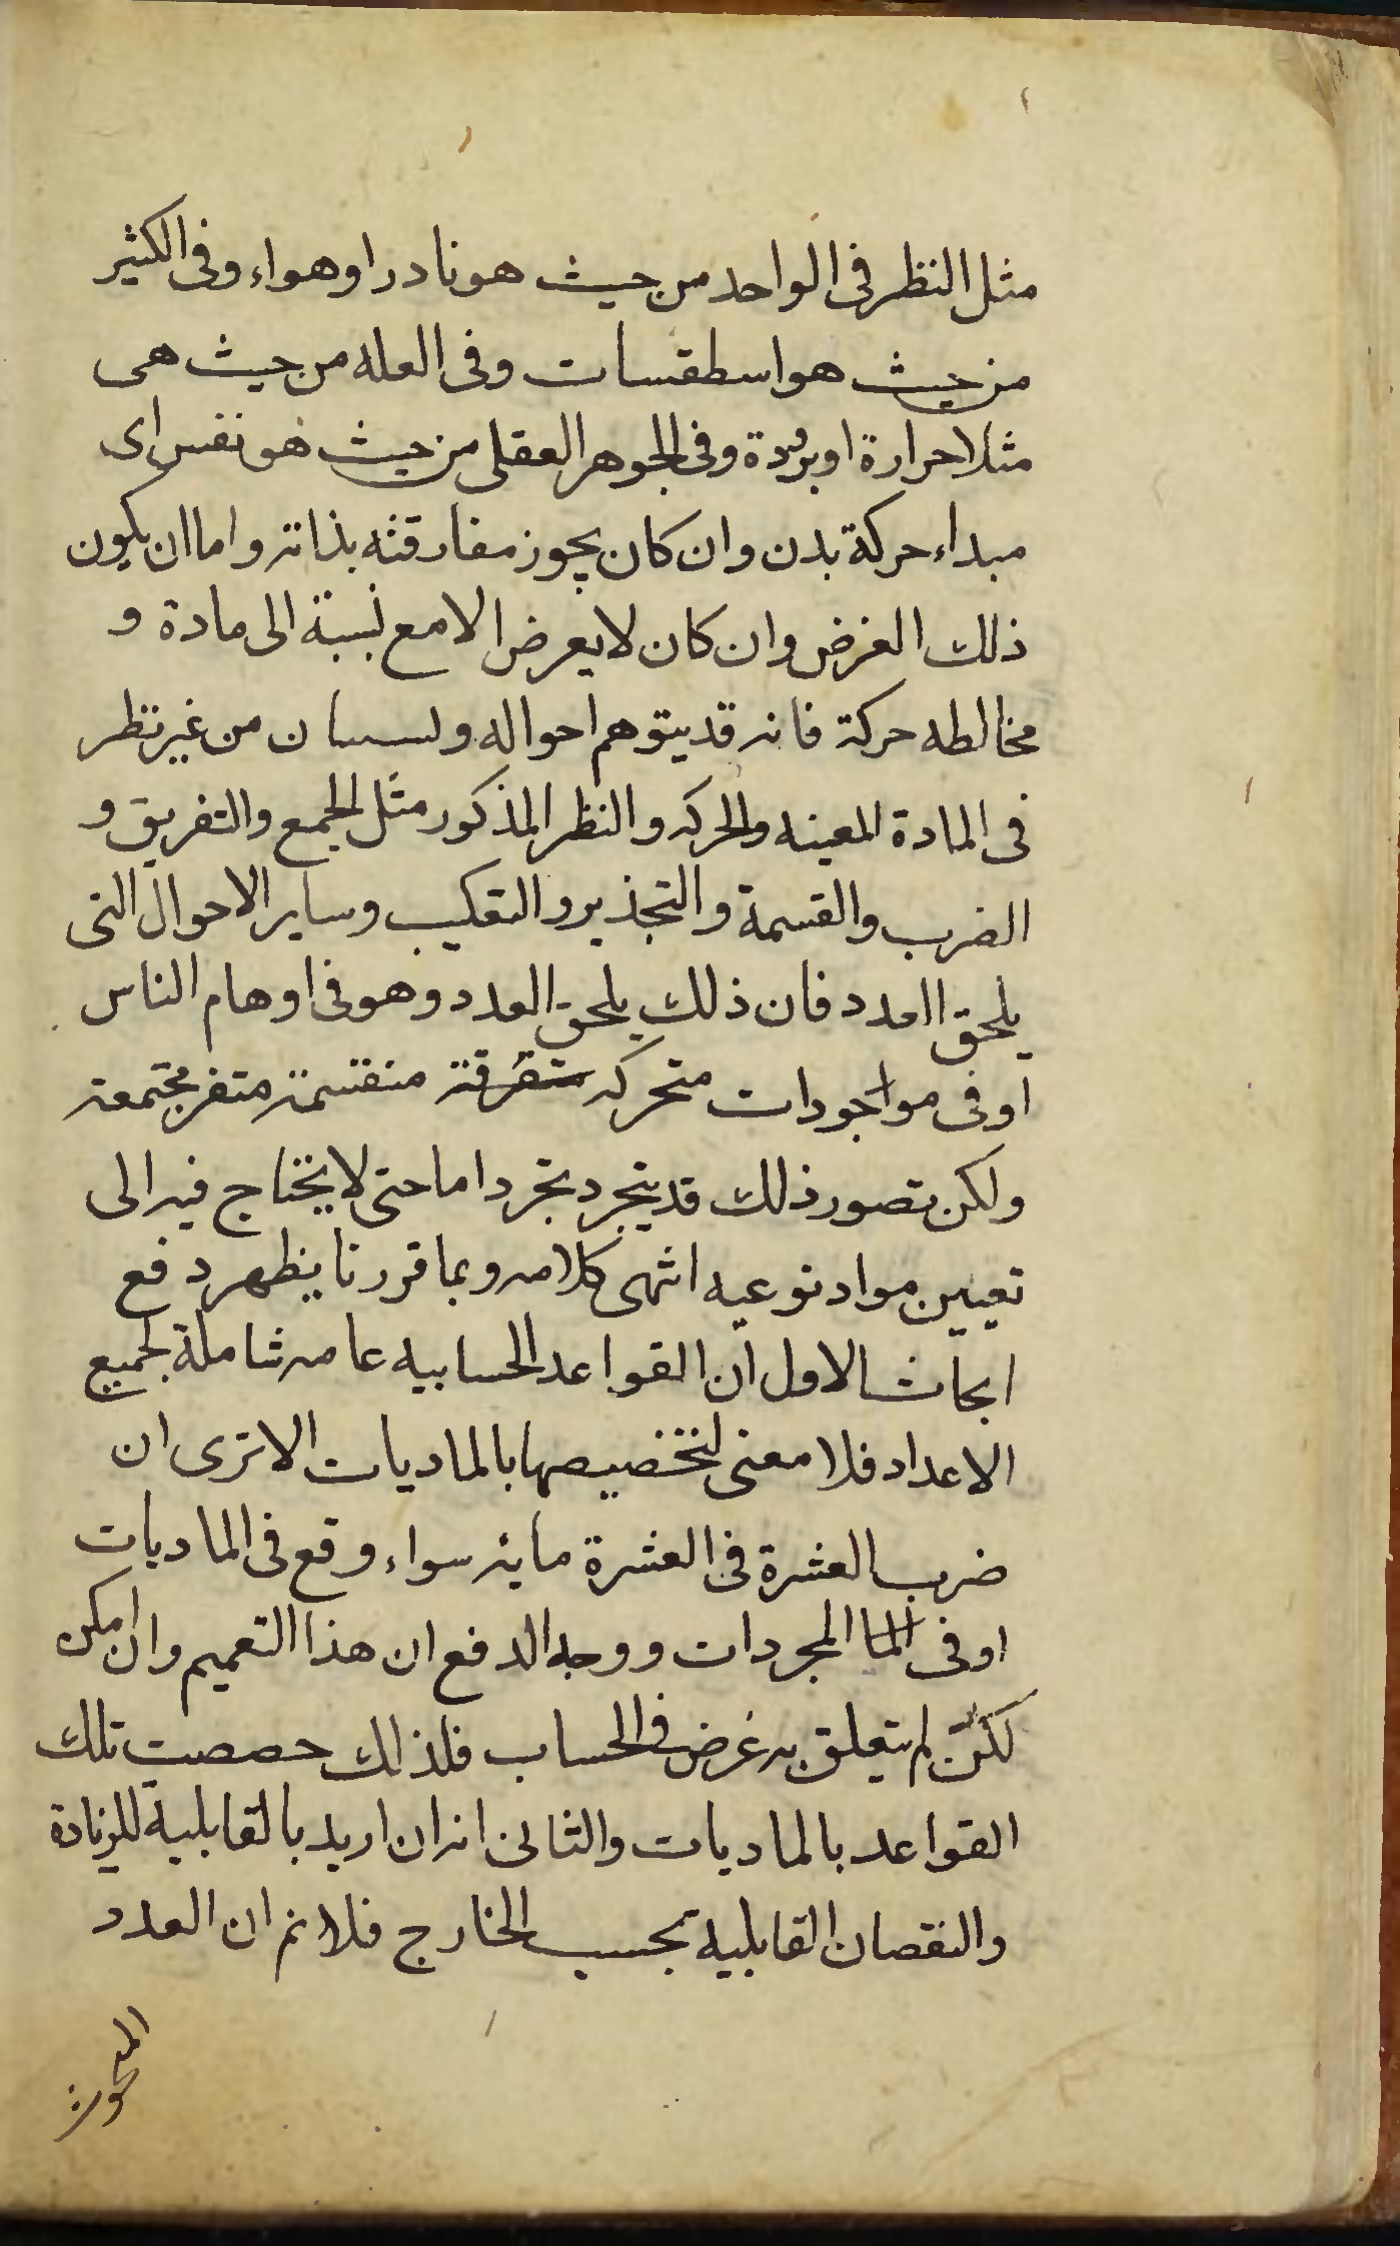 مثل النظر فى الواحد من حيث هو نا درا و هواء وفى الكثير
من حيث هو اسطقسات وفى العله من حيث هى
مثلا حرارة او برودة وفى الجوهر العقلى من حيث هو نفس اى
مبداء حركة بدن وان كان يجوز مفارقته بذاته واما ان يكون
ذلك الغرض وان كان لا يعرض الا مع نسبة الى مادة و
مخالطه حركة فانه قد يتوهم احواله من غير نظر
فى المادة المعينه والحركه والنظر المذكور مثل الجمع والتفريق و
الضرب والقسمة والتجذير والتقكيب وساير الاحوال التى
يلحق العدد فان ذلك يلحق العدد وهو فى اوهام الناس
او فى مواجودات متحركه متفرقة منقسمة متفر مجتمعة
ولكن تصور ذلك قد يتجرد تجردا ما حتى لا يحتاج فيه الى
تعيين مواد نوعيه انتهى كلامه وبما قررنا يظهر دفع
ابحاث الاول ان القواعد الحسابيه عامه شاملة لجميع
الاعداد فلا معنى لتخصيصها بالماديات الا ترى ان
ضرب العشرة فى العشرة مايه سواء وقع فى الماديات
او فى الما المجردات ووجه الدفع ان هذا التعميم وان امكن
لكن لم يتعلق به غرض فى الحساب فلذلك حصصت تلك
القواعد بالماديات والثانى انه ان اريد بالقابلية للزيادة
والنقصان القابلية بحسب الخارج فلا نم ان العدد